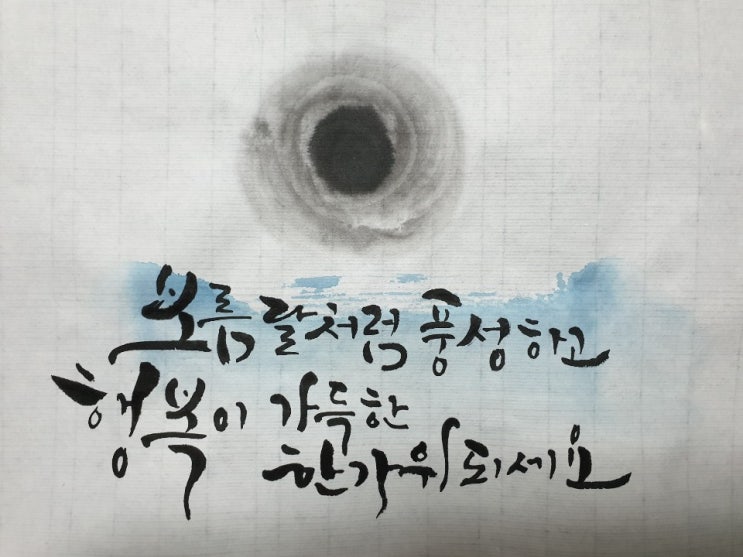 보름달처럼 풍성하고
행복이 가득한
한가위되세요